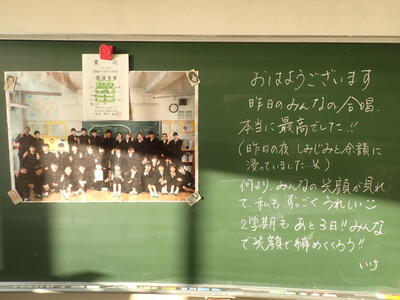 賞状
おはようございます
昨日のみんなの合唱
本当に最高でした!!
(昨日の夜 しみじみと余韻に
浸っていました
何より、みんなの笑顔が見れ
て私もすっごくうれしい
2学期も あと3日!! みんな
で笑顔で締めくくろう!!